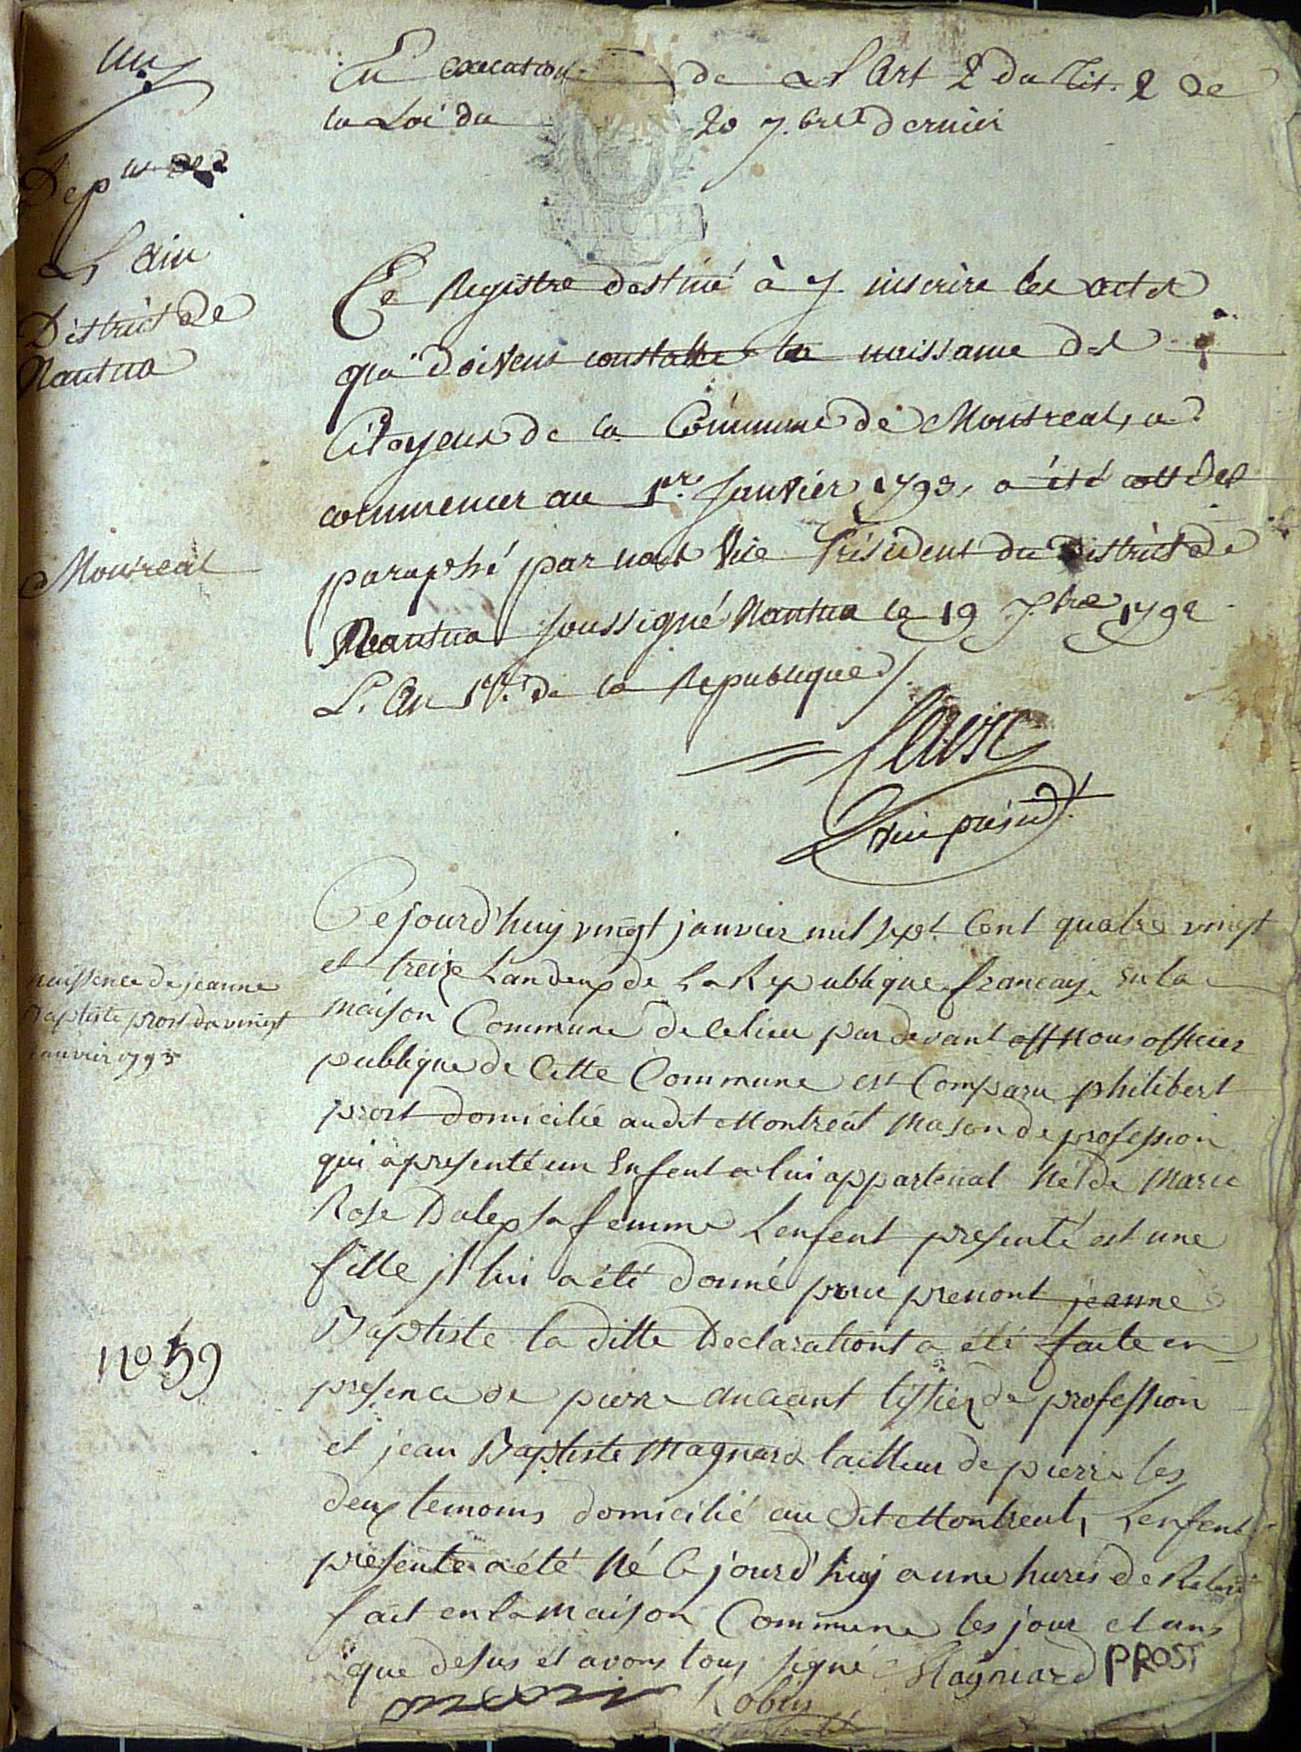 un
En execution de L'Art 2 du Tit. 2 de
la Loi du 20 7.bre dernier
Dep.t de
L'ain
District de
Nantua
Montreal
MINUTE
Ce Registre destiné à y inscrire les actes
qui doivent constater la naissance des
Citoyens de la Commune de Montreal, a
commencer au 1.er Janvier 1793, a été cotté et
paraphé par nous Vice Président du District de
Nantua soussigné Nantua le 19 bre 1792
L'An 1er de la Republique
vice présid.t
naissence de jeanne
Baptiste prost du vingt
janvier 1793
no 59
Ce jourd'huy vingt janvier mil sept Cent quatre vingt
et treize Lan deux de La Republique francaise en la
maison Commune de Ce lieu par devant Nous officier
publique de Cette Commune est Comparu philibert
prost domicilié audit Montreal Mason de profession
qui a presenté un Enfent a lui appartenat Né de Marie
Rose Dalex sa femme Lenfent presenté est une
fille jl lui a été donné pour prenont jeanne
Baptiste la ditte Declarationt a été faite en
presence de pierre tissier de profession
et jean Baptiste Magnard tailleur de pierre les
deux temoins domicilié au dit Montreal, Lenfent
presente a été Né Ce jourd'huy a une hures de
fait en la maison Commune les jour et ans
que desus et avons tous signé Magniard PROST
Robin